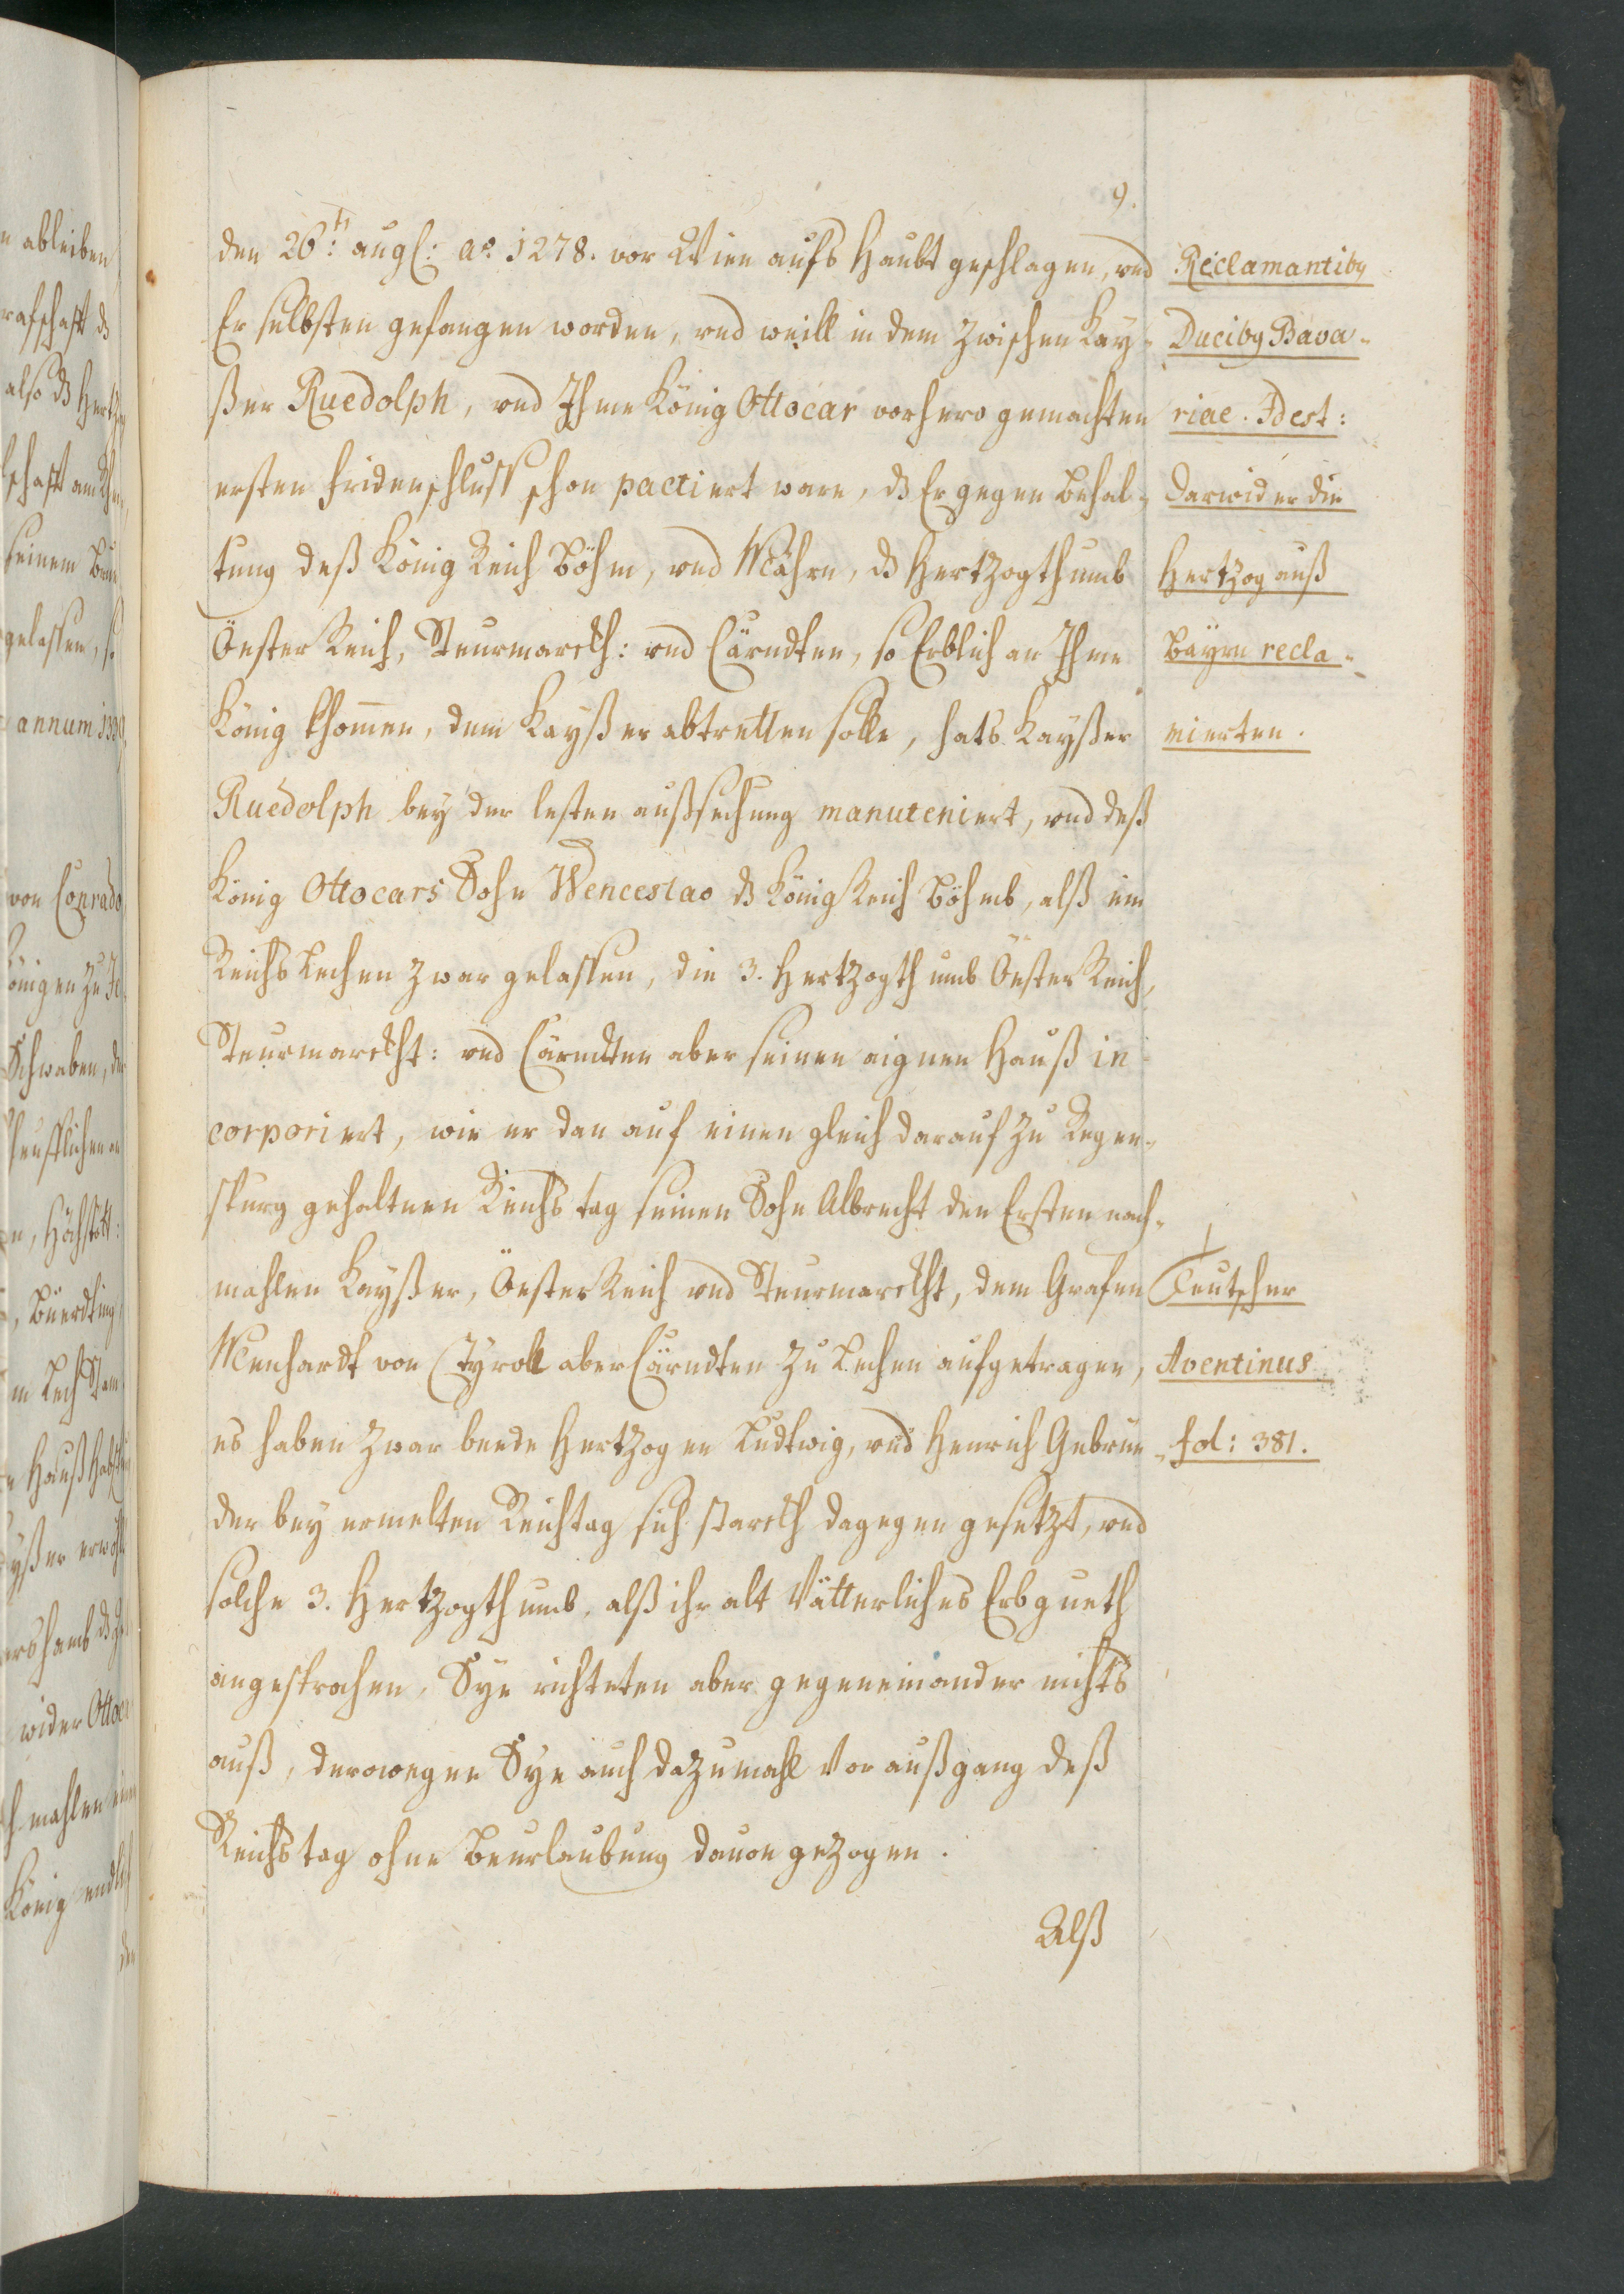 9.
den 26:ts aug[: ao 1278. vor Wien aufs Haubt geschlagen, vnd
Er selbsten gefangen worden, vnd weill in dem zwischen Kay-
ßer Ruedolph, vnd Ihme König Ottocar vorhero gemachten
ersten fridenschluss schon pactiert ware, ds Er gegen behal-
tung deß König Reich Böhm, vnd Mähren, ds Hertzogthumb
Öester Reich, Steurmarckh: vnd Cärndten, so Erblich an Ihme
König khommen, dem Kayßer abtretten solle, hats Kayßer
Ruedolph bey der lesten außsechung manuteniert, vnd deß
König Ottocars Sohn Wenceslao ds König Reich Böhmb, alß ein
Reichs Lechen zwar gelassen, die 3. Hertzogthumb Öester Reich,
Steurmarckht: vnd Cärndten aber seinen aignen Hauß in
corporiert, wie er dan auf einen gleich darauf zu Regen-
spurg gehaltnen Reichs tag seinen Sohn Albrecht den Ersten nach-
mahlen Kayßer, Öester Reich vnd Steurmarckht, dem Grafen
Menhardt von Tyroll aber Cärndten zu Lechen aufgetragen,
es haben zwar beede Hertzogen Ludtwig, vnd Henrich Gebrüe-
der bey ermelten Reichtag sich starckh dagegen gesetzt, vnd
solche 3. Hertzogthumb, alß ihr alt Vätterliches Erbgueth
angesprochen, Sye richteten aber gegeneinander nichts
auß, derowegen Sye auch dazumahl vor außgang deß
Reichs tag ohne beurlaubung dauon gezogen.
Alß
Reclamantibus
Ducibus Bava-
riae. Id est:
darwider die
Hertzog auß
Bayrn recla-
mierten.
Teutscher
Aventinus
fol: 381.